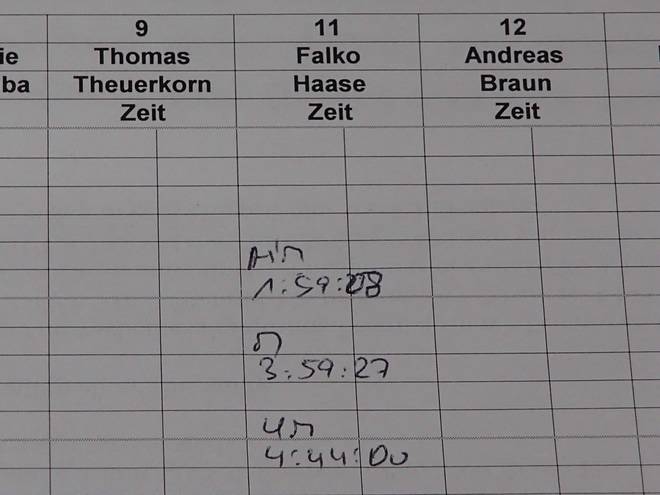 9 11 12
ie Thomas Falko Andreas
ba Theuerkorn Haase Braun
Zeit Zeit Zeit
1:59:08
3:59:27
4:44:00